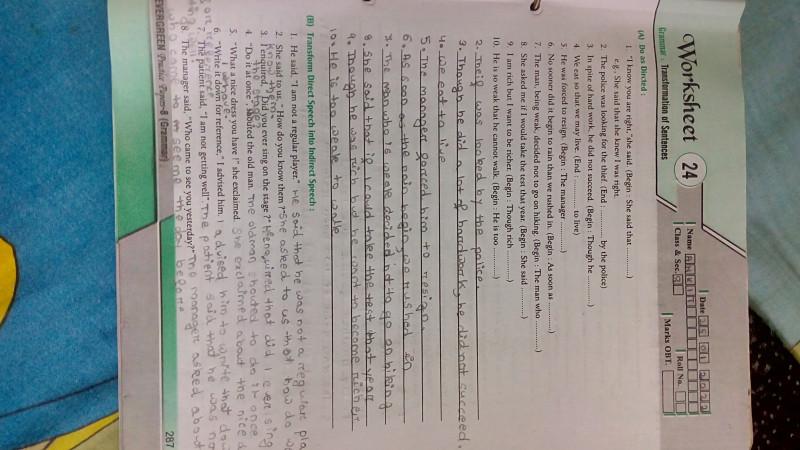 Worksheet 24
Grammar : Transformation of Sentences
Name
Class & Sec. 8
Date 25 01 2022
Roll No.
Marks OBT.
(A) Do as Directed :
1. "I know you are right," she said. (Begin : She said that ............)
e.g. She said that she knew I was right.
2. The police was looking for the thief. (End : ............ by the police)
3. In spite of hard work, he did not succeed. (Begin : Though he ............)
4. We eat so that we may live. (End : ............ to live)
5. He was forced to resign. (Begin : The manager ............)
6. No sooner did it begin to rain than we rushed in. (Begin : As soon as ............)
7. The man, being weak, decided not to go on hiking. (Begin : The man who ............)
8. She asked me if I would take the test that year. (Begin : She said ............)
9. I am rich but I want to be richer. (Begin : Though rich ............)
10. He is so weak that he cannot walk. (Begin : He is too ............)
2. Theif was looked by the police
3. Though he did a lot of hardwork, he did not succeed.
4. We eat to live
5. The manager forced him to resign
6. As soon as the rain begin, we rushed in
7. The man who is weak decided not to go on hiking
8. She said that if I could take the test that year
9. Though he was rich but he want to become richer
10. He is too weak to walk
(B) Transform Direct Speech into Indirect Speech :
1. He said, "I am not a regular player." He said that he was not a regular pla
2. She said to us, "How do you know them ?" She asked to us that how do we
know them
3. I enquired, "Did you ever sing on the stage ?" He enquired that did I ever sing
on the stage
4. "Do it at once", shouted the old man. The oldman shouted to do it at once
5. "What a nice dress you have !" she exclaimed She exclaimed about the nice d
I have
6. "Write it down for reference," I advised him. I advised him to write that dow
for reference
7. The patient said, "I am not getting well". The patient said that he was no
8. The manager said, "Who came to see you yesterday?" The manager asked about
who came to see me the day before
EVERGREEN Practice Papers-8 (Grammar)
287